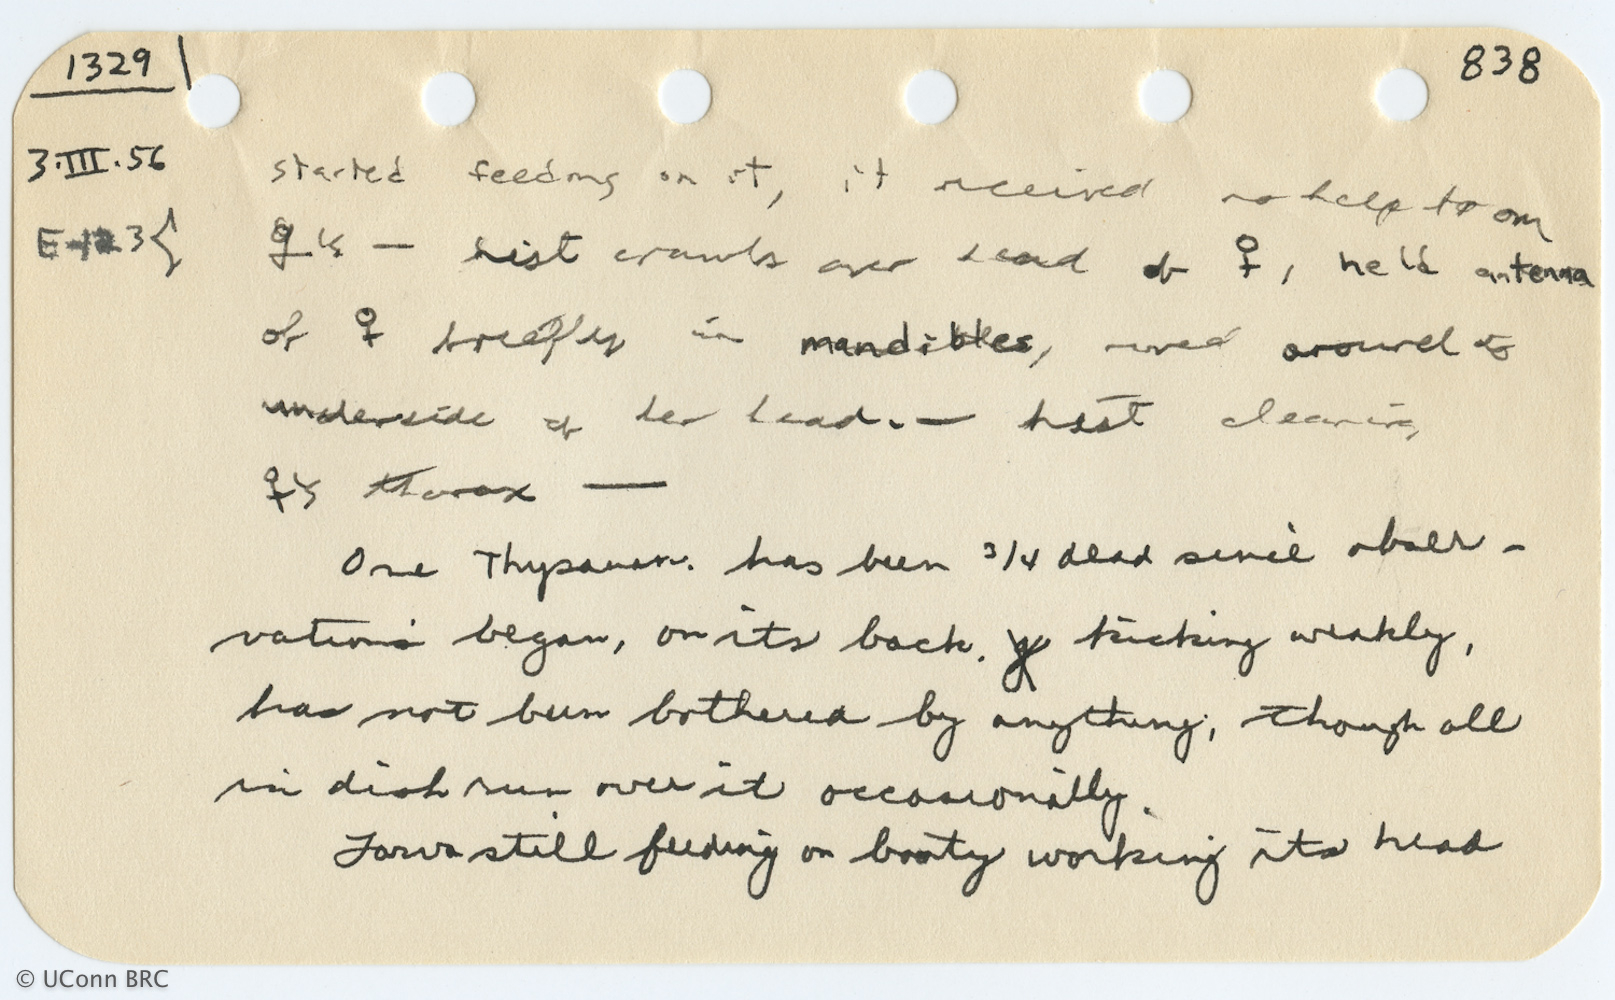 1329 838
3.III.56 started feeding on it, it received no help from
E-123{ ♀'s — hist crawls over head of ♀, held antenna
of ♀ briefly in mandibles, moved around to
underside of her head. — hist cleaning
♀'s thorax —
One Thysanan. has been 3/4 dead since obser-
vations began, on its back. kicking weakly,
has not been bothered by anything, though all
in dish run over it occasionally.
Larva still feeding on booty working its head
© UConn BRC